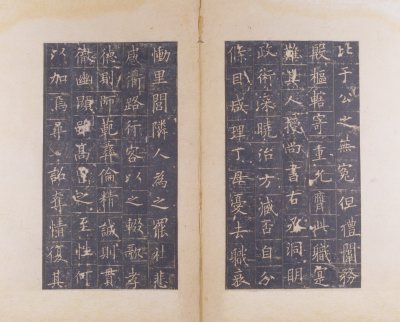 比于公之無冤但禮闈務
殷樞轄寄重允膺此職寔
難其人授尚書右丞洞明
政術深曉治方臧否自分
條目咸理丁母憂去職哀
慟里閭鄰人為之罷社悲
感衢路行客以之輟歌孝
德則師範彝倫精誠則貫
徹幽顯雖高之至性何
以加焉尋詔奪情復其